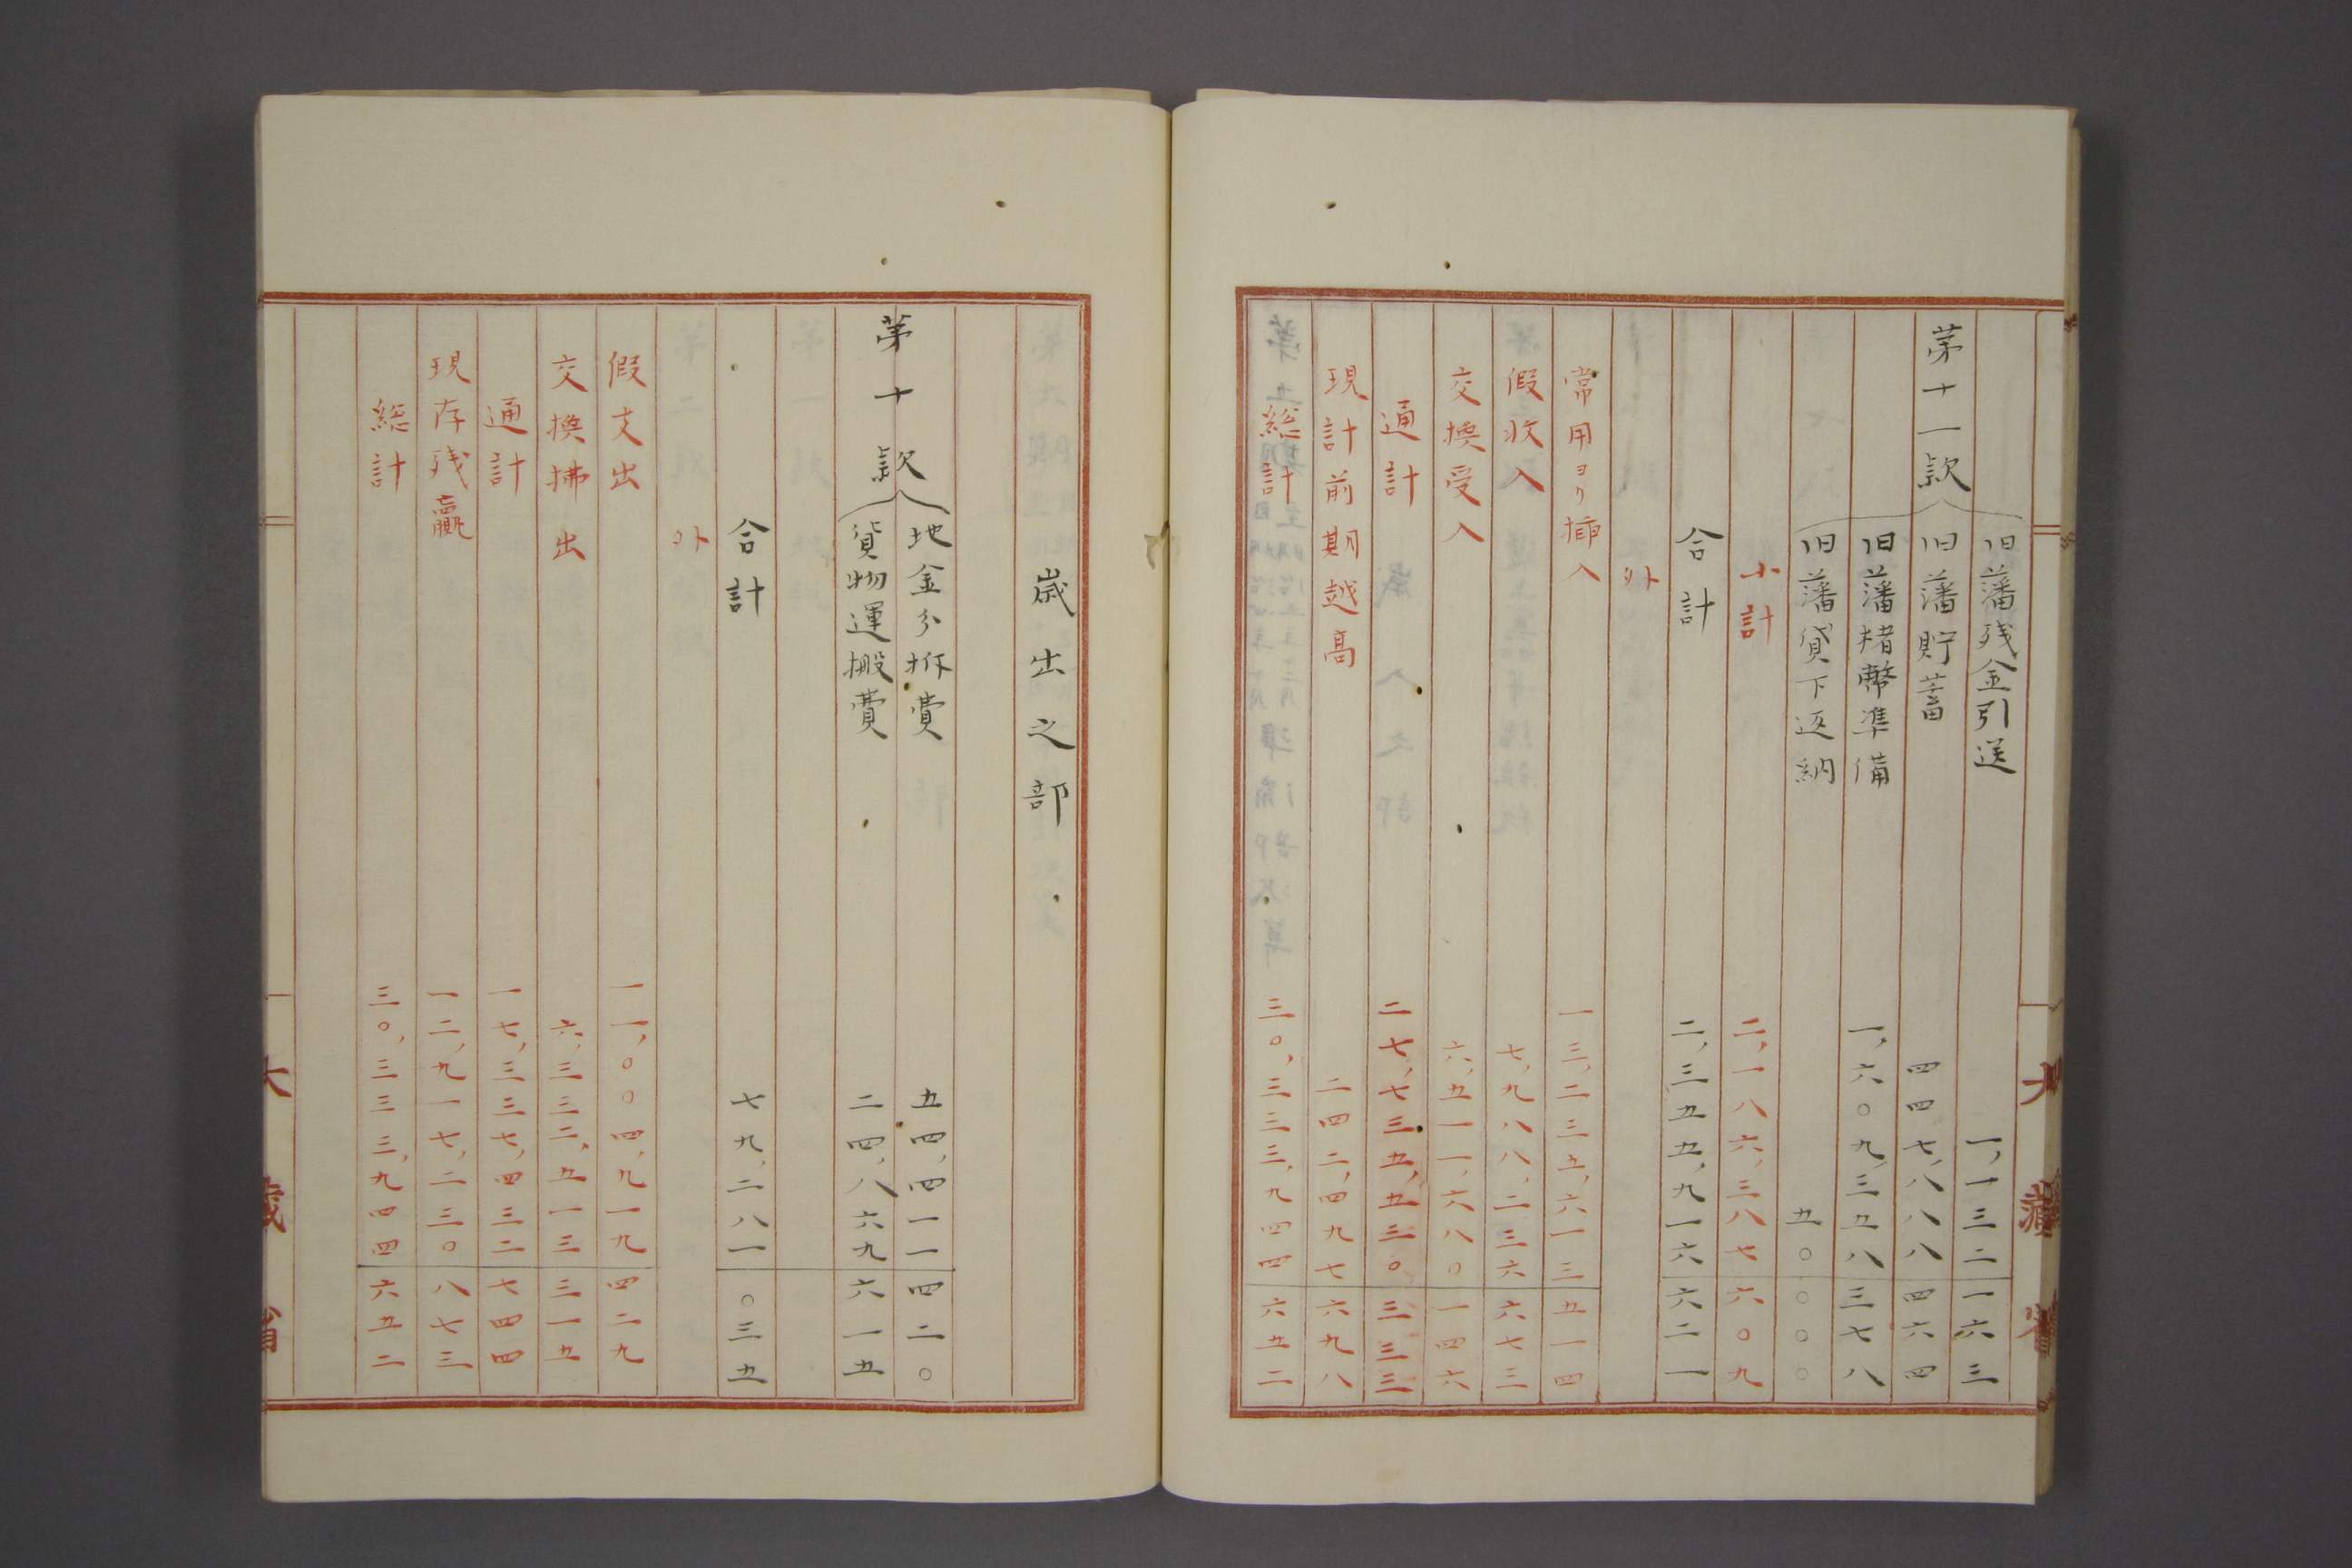 第十一款
旧藩残金引送 一,一三二 一六三
旧藩貯蓄 四四七,八八八 四六四
旧藩楮幣準備 一,六〇九,三五八 三七八
旧藩貸下返納 五〇 〇〇〇
小計 二,一八六,三八七 六〇九
合計 二,三五五,九一六 六二一
外
常用ヨリ挿入 一三,二三五,六一三 五一四
假收入 七,九八八,二三六 六七三
交換受入 六,五一一,六八〇 一四六
通計 二七,七三五,五三〇 三三三
現計前期越高 二四二,四九七 六九八
総計 三〇,三三三,九四四 六五二
歳出之部
第十款
地金分拆費 五四,四一一 四二〇
貨物運搬費 二四,八六九 六一五
合計 七九,二八一 〇三五
外
假支出 一一,〇〇四,九一九 四二九
交換拂出 六,三三二,五一三 三一五
通計 一七,三三七,四三二 七四四
現存残贏 一二,九一七,二三〇 八七三
総計 三〇,三三三,九四四 六五二
大藏省